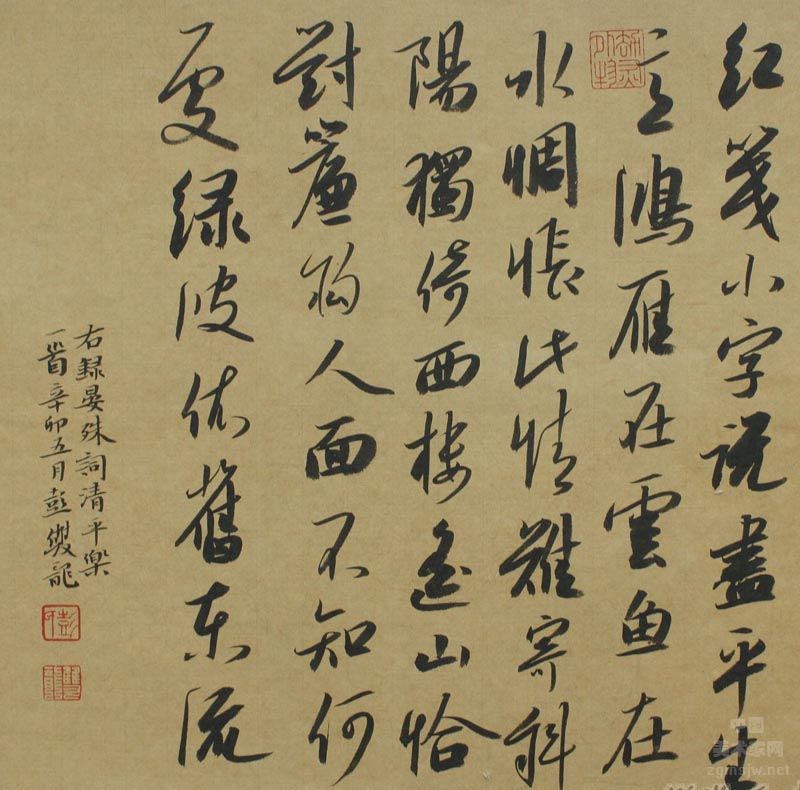 紅箋小字說盡平生
意鴻雁在雲魚在
水惆悵此情難寄斜
陽獨倚西樓遙山恰
對簾鈎人面不知何
處綠波依舊東流
右録晏殊詞清平樂
一首辛卯五月彭雙龍
中国
美术家网
zgmsjw.net